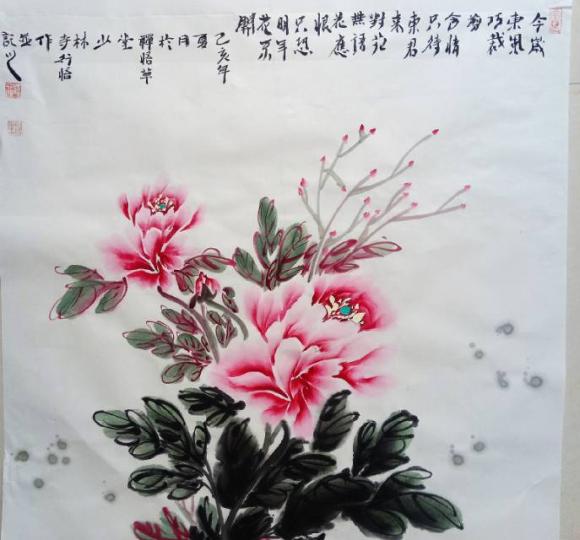 今歲
東風
巧裁
剪
含情
只待
東君
來
對花
無語
花應
恨
只恐
明年
花不
開
己亥年
夏
月
於
禪悟草
堂
少
林
寺行悟
作
並
記之